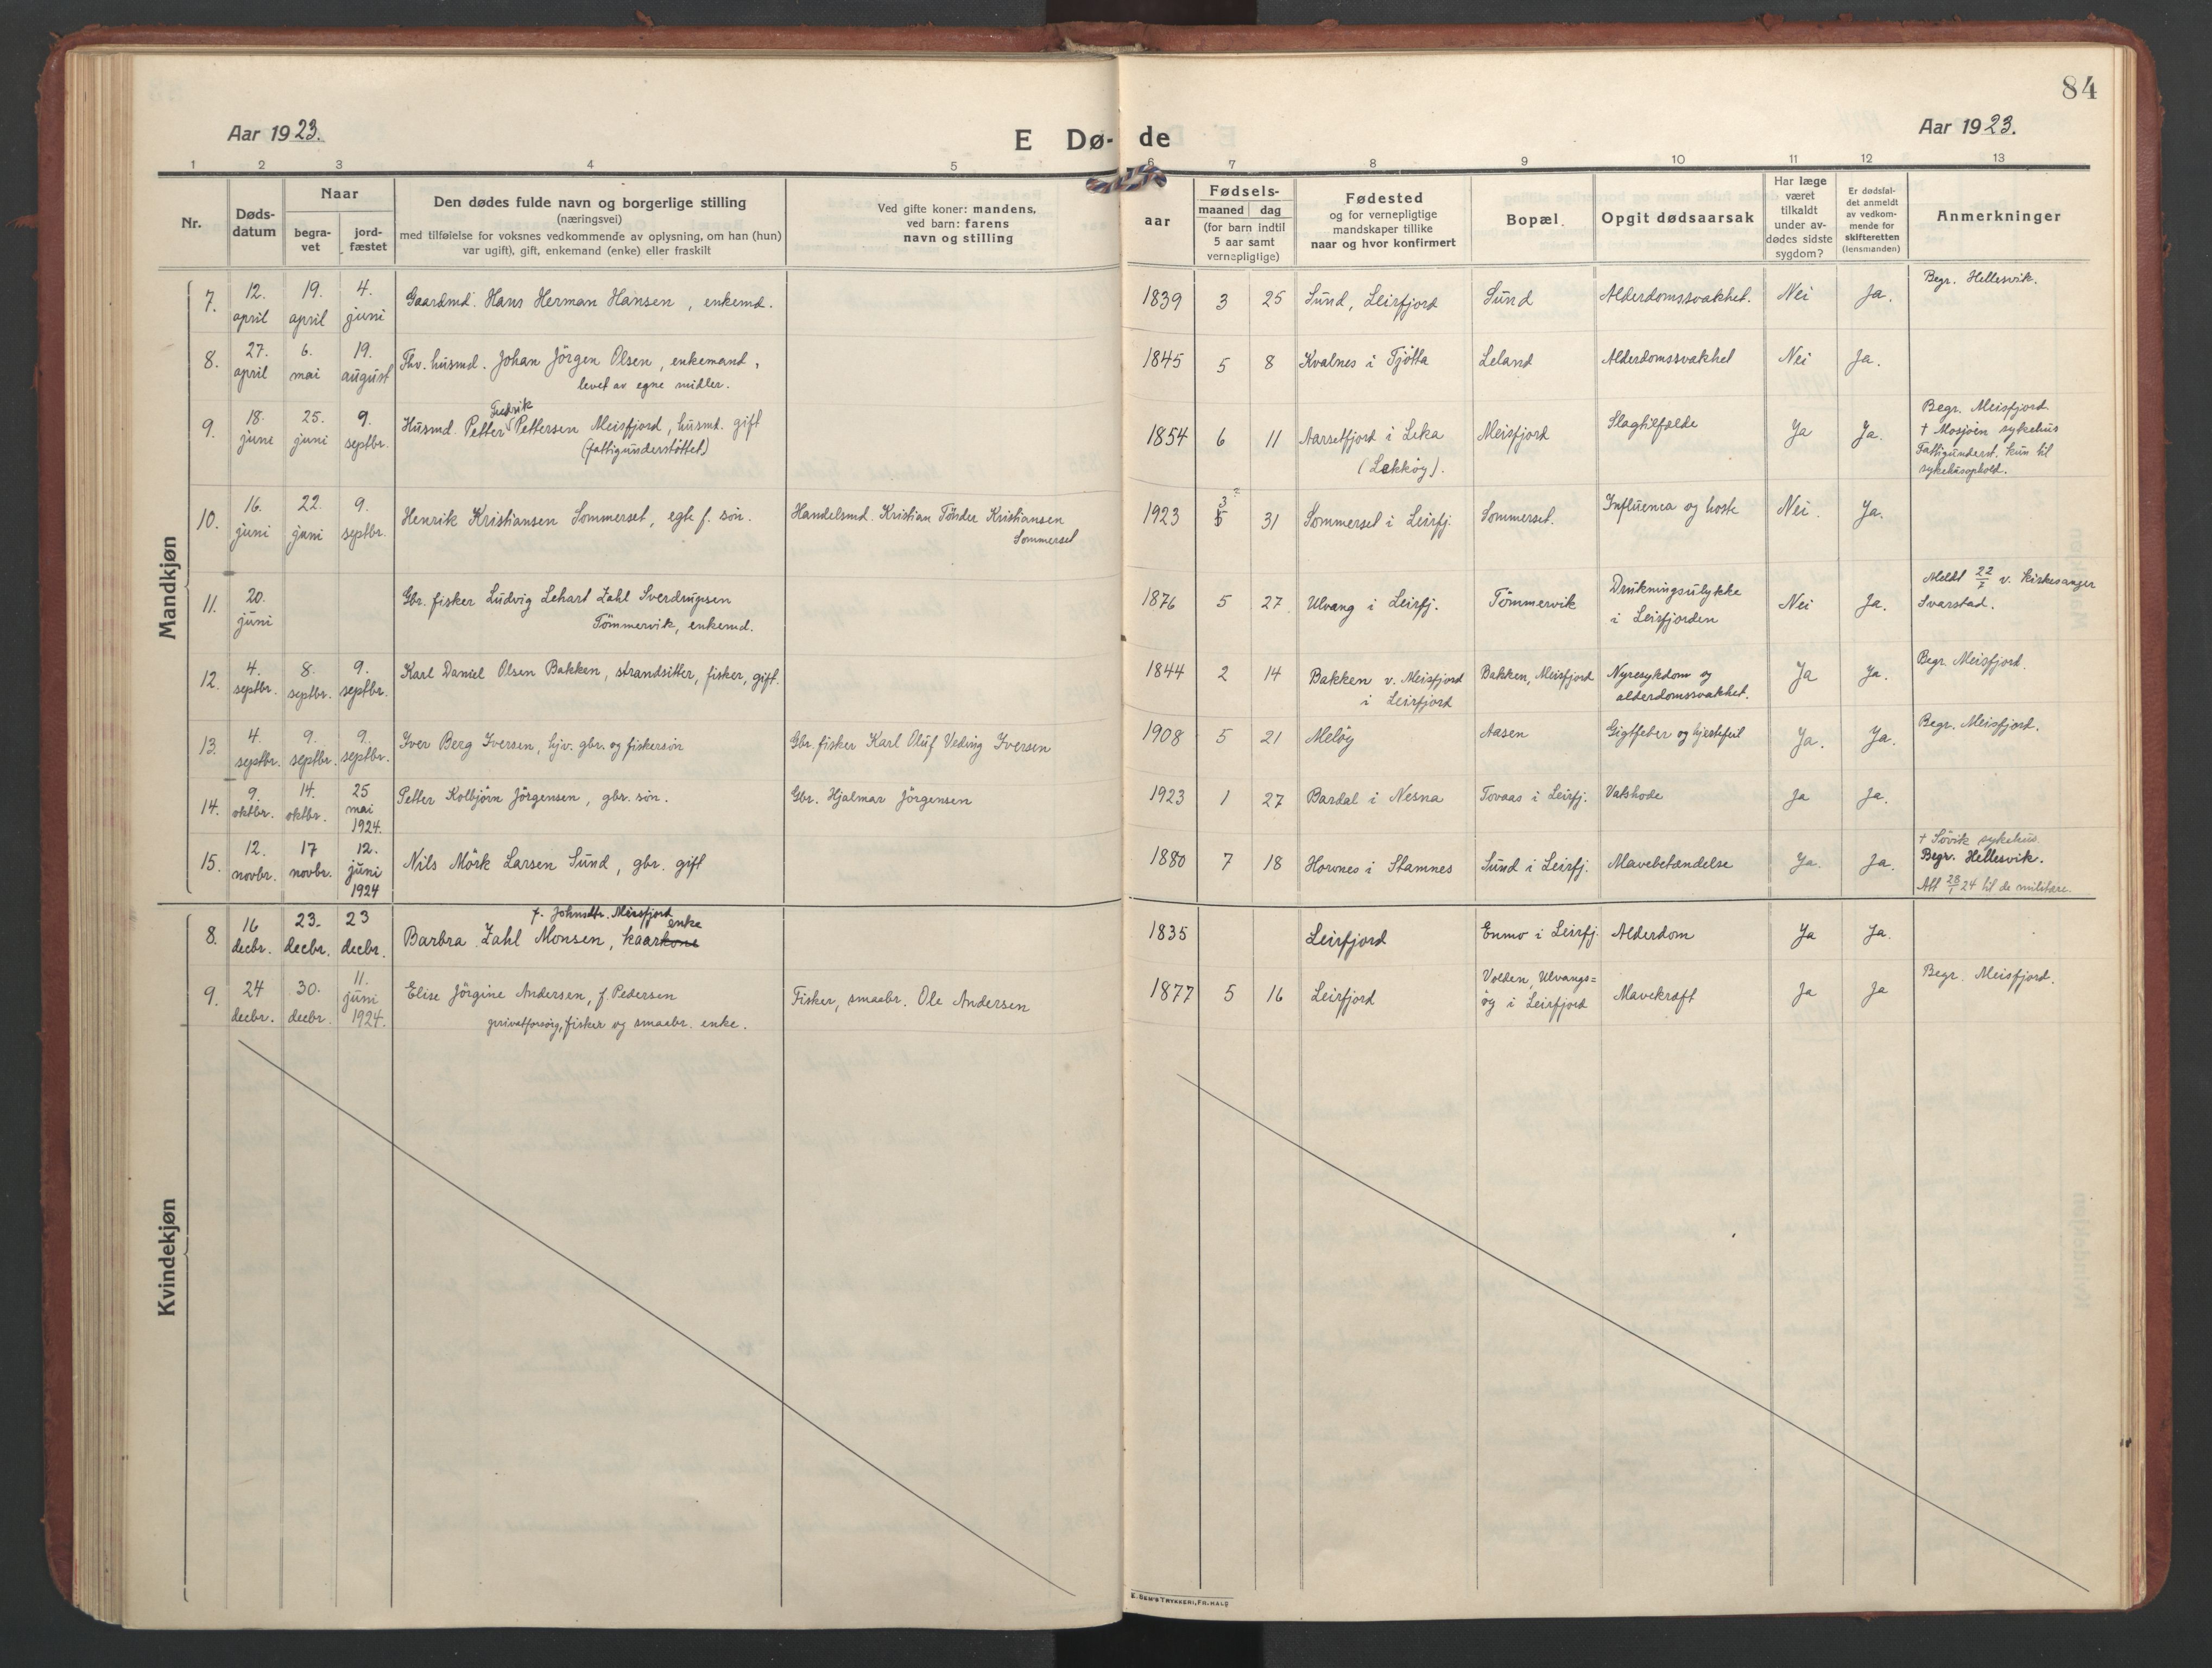 84
Aar 1923.
E Dø- de
Aar 1923.
1 2 3 4 5 6 7 8 9 10 11 12 13
Nr.
Døds-
datum
Naar
begra-
vet
jord-
fæstet
Den dødes fulde navn og borgerlige stilling
(næringsvei)
med tilføielse for voksnes vedkommende av oplysning, om han (hun)
var ugift), gift, enkemand (enke) eller fraskilt
Ved gifte koner: mandens,
ved barn: farens
navn og stilling
aar
Fødsels-
maaned dag
(for barn indtil
5 aar samt
vernepligtige)
Fødested
og for vernepligtige
mandskaper tillike
naar og hvor konfirmert
Bopæl.
Opgit dødsaarsak
Har læge
været
tilkaldt
under av-
dødes sidste
sygdom?
Er dødsfal-
det anmeldt
av vedkom-
mende for
skifteretten
(lensmanden)
Anmerkninger
Mandkjøn
7.
12.
april
19.
april
4.
juni
Gaardmd. Hans Herman Hansen, enkemd.
1839 3 25
Sund, Leirfjord
Sund
Alderdomssvakhet.
Nei
Ja.
Begr. Hellesvik.
8.
27.
april
6.
mai
19.
august
Fhv. husmd. Johan Jörgen Olsen, enkemand,
levet av egne midler.
1845 5 8
Kvalnes i Tjötta
Leland
Alderdomssvakhet
Nei
Ja.
9.
18.
june
25.
juni
9.
septbr.
Fredrik
Husmd. Petter Pettersen Meisfjord, husmd. gift
(fattigunderstöttet)
1854 6 11
Aarsetfjord i Leka
(Lekköy).
Meisfjord
Slagtilfælde
Ja
Ja.
Begr. Meisfjord.
† Mosjöen sykehus
Fattigunderst. kun til
sykehusophold.
10.
16.
juni
22.
juni
9.
septbr.
Henrik Kristiansen Sommerset, egte f. sön.
Handelsmd. Kristian Tönder Kristiansen
Sommerset
1923
3 ?
5 31
Sommerset i Leirfj.
Sommerset.
Influenca og hoste
Nei.
Ja.
11.
20.
juni
Gbr. fisker Ludvig Lehart Zahl Sverdrupsen
Tömmervik, enkemd.
1876 5 27
Ulvang i Leirfj.
Tömmervik
Drukningsulykke
i Leirfjorden
Nei
Ja.
Meldt 22/7 v. kirkesanger
Svarstad.
12.
4.
septbr.
8.
septbr.
9.
septbr.
Karl Daniel Olsen Bakken, strandsitter, fisker, gift.
1844 2 14
Bakken v. Meisfjord
i Leirfjord
Bakken, Meisfjord
Nyresykdom og
alderdomssvakhet.
Ja
Ja.
Begr. Meisfjord.
13.
4.
septbr.
9.
septbr.
9.
septbr.
Iver Berg Iversen, hjv. gbr. og fiskersön
Gbr. fisker Karl Oluf Veding Iversen
1908 5 21
Melöy
Aasen
Gigtfeber og hjertefeil
Ja.
Ja.
Begr. Meisfjord.
14.
9.
oktbr.
14.
oktbr.
25
mai
1924.
Petter Kolbjörn Jörgensen, gbr. sön.
Gbr. Hjalmar Jörgensen
1923 1 27
Bardal i Nesna
Tovaas i Leirfj.
Vatshode
Ja
Ja.
15.
12.
novbr.
17
novbr.
12.
juni
1924
Nils Mörk Larsen Sund, gbr. gift
1880 7 18
Hornes i Stamnes
Sund i Leirfj.
Mavebetændelse
Ja.
Ja.
† Sövik sykehus
Begr. Hellesvik.
Att 28/1 24 til de militære.
Kvindekjøn
8.
16
decbr.
23.
decbr.
23
decbr.
f. Johnsdtr. Meisfjord
enke
Barbra Zahl Monsen, kaarkone
1835
Leirfjord
Enmo i Leirfj.
Alderdom
Ja
Ja.
9.
24
decbr.
30.
decbr.
11.
juni
1924.
Elise Jörgine Andersen, f. Pedersen
privatforsörg, fisker og smaabr. enke.
Fisker, smaabr. Ole Andersen
1877 5 16
Leirfjord
Volden, Ulvangs=
öy i Leirfjord
Mavekræft
Ja
Ja
Begr. Meisfjord.
E. SEM'S TRYKKERI, FR.HALD